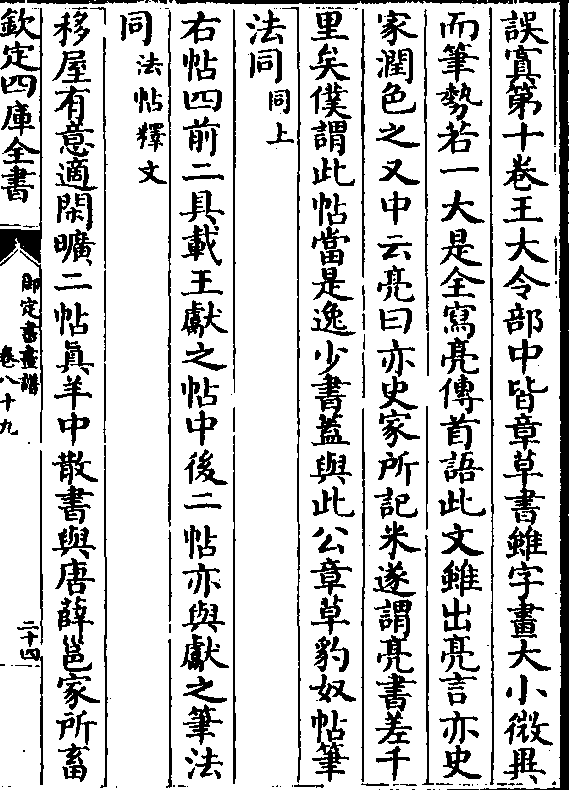 誤寘第十卷王大令部中皆章草書雖字畫大小微異
而筆勢若一大是全寫亮傳首語此文雖出亮言亦史
家潤色之又中云亮曰亦史家所記米遂謂亮書差千
里矣僕謂此帖當是逸少書葢與此公章草豹奴帖筆
法同同上
右帖四前二具載王獻之帖中後二帖亦與獻之筆法
同法帖釋文
移屋有意適閑曠二帖真羊中散書與唐薛邕家所畜
欽定四庫全書
御定書畫譜
卷八十九
二十四